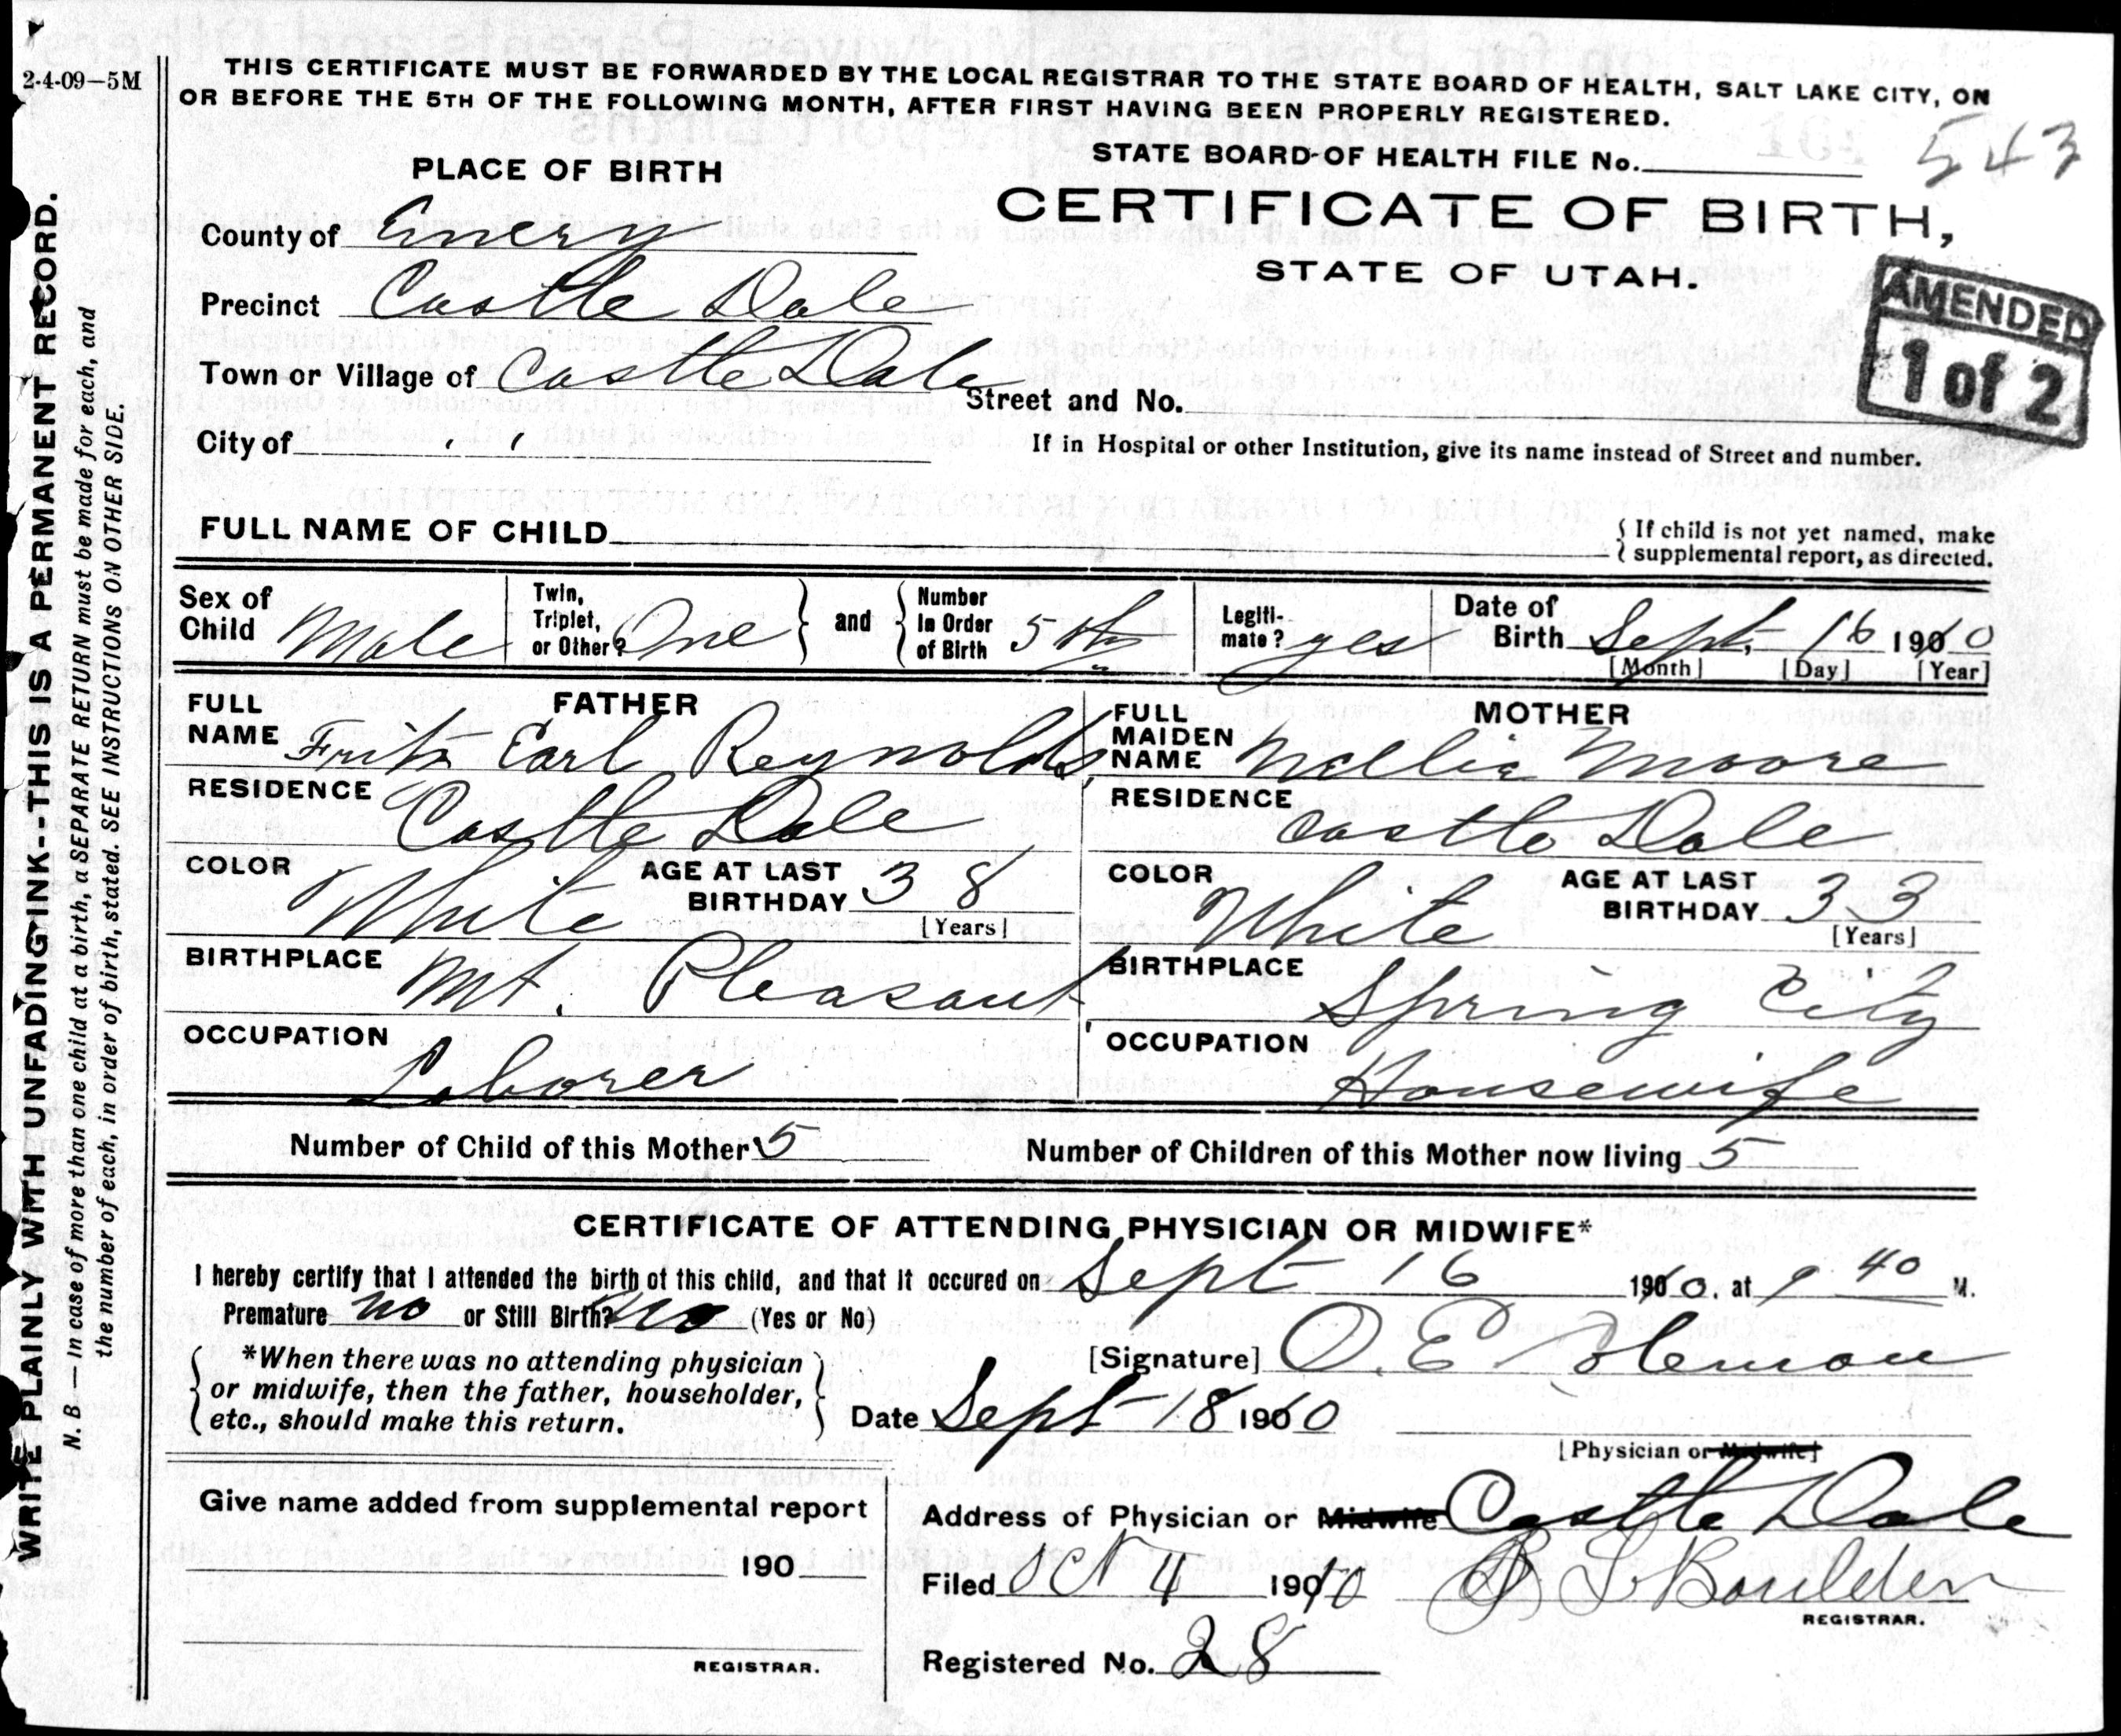 2-4-09-5M
THIS CERTIFICATE MUST BE FORWARDED BY THE LOCAL REGISTRAR TO THE STATE BOARD OF HEALTH, SALT LAKE CITY, ON
OR BEFORE THE 5TH OF THE FOLLOWING MONTH, AFTER FIRST HAVING BEEN PROPERLY REGISTERED.
STATE BOARD OF HEALTH FILE No. 543
PLACE OF BIRTH
CERTIFICATE OF BIRTH,
STATE OF UTAH.
AMENDED
1 of 2
County of Emery
Precinct Castle Dale
Town or Village of Castle Dale
Street and No.
City of " "
If in Hospital or other Institution, give its name instead of Street and number.
FULL NAME OF CHILD
If child is not yet named, make
supplemental report, as directed.
Sex of Child Male
Twin, Triplet, or Other? One
and
Number In Order of Birth 5th
Legiti-mate? yes
Date of Birth Sept. 16 1910
[Month] [Day] [Year]
FATHER
FULL NAME Fritz Earl Reynolds
RESIDENCE Castle Dale
COLOR White
AGE AT LAST BIRTHDAY 38
[Years]
BIRTHPLACE Mt. Pleasant
OCCUPATION Laborer
MOTHER
FULL MAIDEN NAME Nellie Moore
RESIDENCE Castle Dale
COLOR White
AGE AT LAST BIRTHDAY 33
[Years]
BIRTHPLACE Spring City
OCCUPATION Housewife
Number of Child of this Mother 5
Number of Children of this Mother now living 5
CERTIFICATE OF ATTENDING PHYSICIAN OR MIDWIFE*
I hereby certify that I attended the birth of this child, and that it occured on Sept 16 1910, at 9 40 M.
Premature no or Still Birth? no (Yes or No)
*When there was no attending physician
or midwife, then the father, householder,
etc., should make this return.
[Signature] O. E.
Date Sept 18 1910
[Physician or Midwife]
Give name added from supplemental report
190
REGISTRAR.
Address of Physician or Midwife Castle Dale
Filed Oct 4 1910
Boulden
REGISTRAR.
Registered No. 28
WRITE PLAINLY WITH UNFADING INK--THIS IS A PERMANENT RECORD.
N. B. — In case of more than one child at a birth, a SEPARATE RETURN must be made for each, and
the number of each, in order of birth, stated. SEE INSTRUCTIONS ON OTHER SIDE.